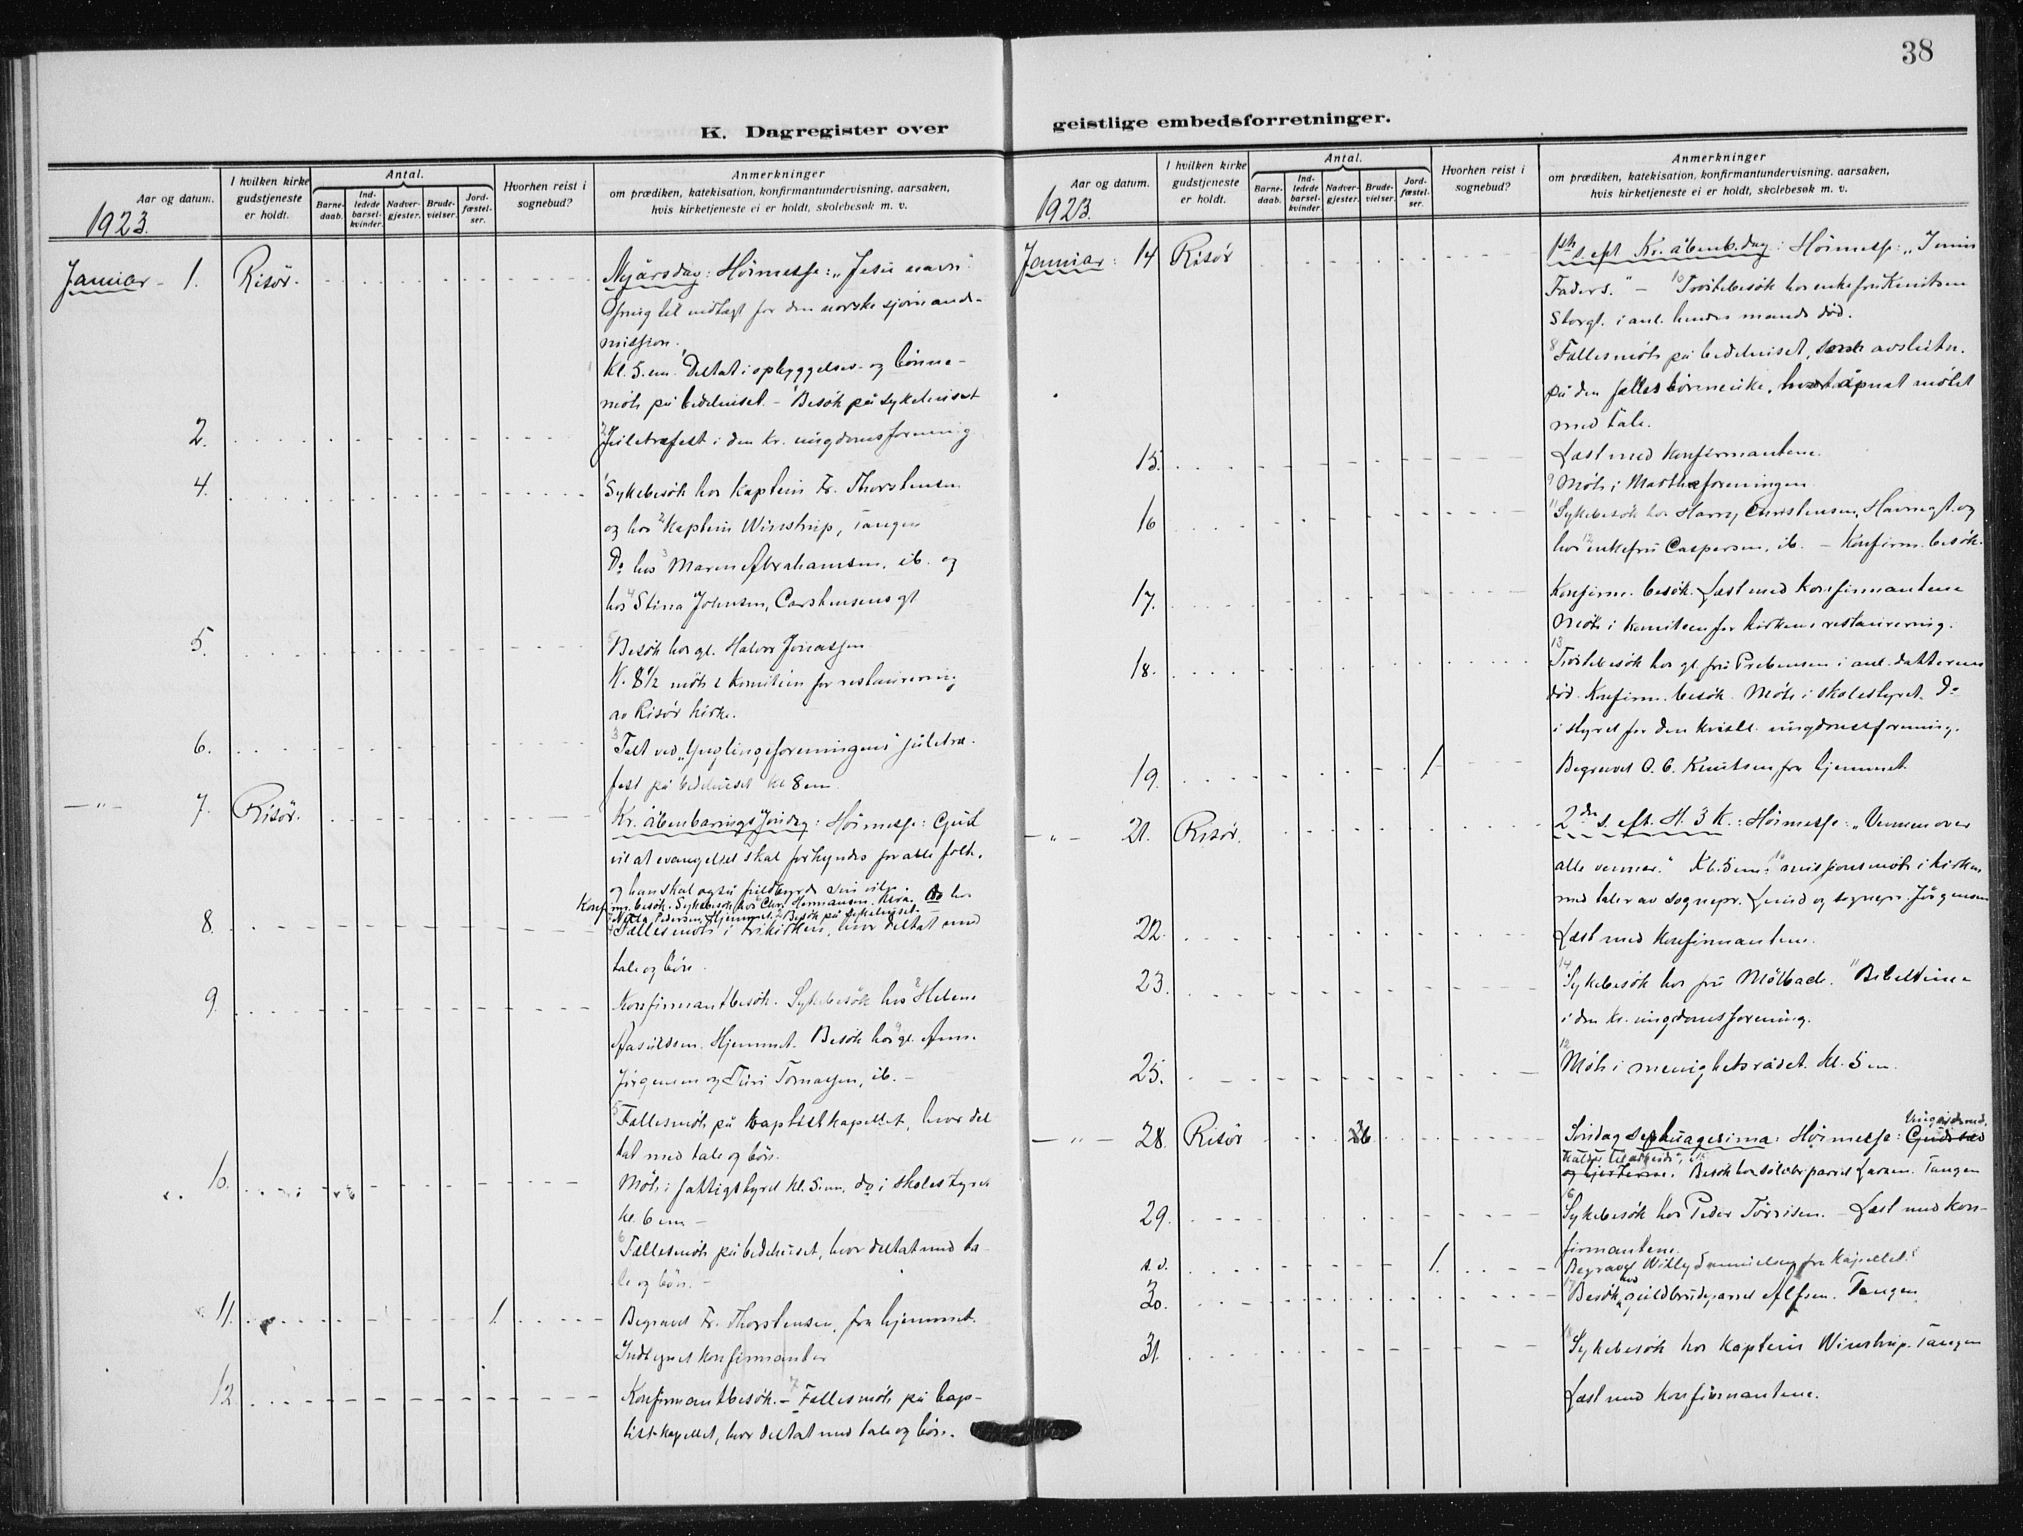 38
K. Dagregister over geistlige embedsforretninger.
Aar og datum.
I hvilken kirke gudstjeneste er holdt.
Antal.
Barnedaab.
Indledede barselkvinder.
Nadvergjester.
Brudevielser.
Jordfæstelser.
Hvorhen reist i sognebud?
Anmerkninger
om prædiken, katekisation, konfirmantundervisning, aarsaken,
hvis kirketjeneste ei er holdt, skolebesøk m. v.
1923.
Januar - 1. Risör. Nyårsdag: Höimesse: „Jesu navn".
Ofring til indtægt for den norske sjömands-
mission.
Kl. 5. em. Deltat i opbyggelses- og bönne-
möte på bedehuset. - Besök på sykehuset
2. Juletræfest i den kr. ungdomsforening
4. Sykebesök hos kaptein Fr. Thorstensen
og hos kaptein Winstrup, Tangen
Do hos Maren Abrahamsen, ib. og
hos Stina Johnsen, Carstensens gt
5. Besök hos gl. Halvor Jonassen
Kl. 8 1/2 möte i komiteen for restaurering
av Risör kirke.
6. Talt ved „Ynglingeforeningens" juletræ-
fest på bedehuset kl 8 em
—"— 7. Risör. Kr. åbenbarings söndag: Höimesse: Gud
vil at evangeliet skal forkyndes for alle folk,
og han skal også fuldbyrde sin vilje.
Konfirm. besök. Sykebesök hos Chr. Hermansen, Do hos
Pedersen, Hjemmet. Besök på sykehuset.
8. Fællesmöte i frikirken, hvor deltat med
tale og bön.
9. Konfirmantbesök. Sykebesök hos Helene
Aasuldsen, Hjemmet. Besök hos gl. Anne
Jörgensen og Turi Tomassen, ib. -
Fællesmöte på baptistkapellet, hvor del
tat med tale og bön.
10. Möte i fattigstyret kl. 5 em, do i skolestyret
kl. 6 em -
Fællesmöte på bedehuset, hvor deltat med ta-
le og bön. -
11. 1. Begravet Fr. Thorstensen, fra hjemmet.
Indtegnet konfirmanter
12. Konfirmantbesök. - Fællesmöte på bap-
tistkapellet, hvor deltat med tale og bön.
Aar og datum.
I hvilken kirke gudstjeneste er holdt.
Antal.
Barnedaab.
Indledede barselkvinder.
Nadvergjester.
Brudevielser.
Jordfæstelser.
Hvorhen reist i sognebud?
Anmerkninger
om prædiken, katekisation, konfirmantundervisning, aarsaken,
hvis kirketjeneste ei er holdt, skolebesøk m. v.
1923.
Januar: 14 Risör 1ste s. eft Kr. åbenb.dag: Höimesse: „I min
Faders." - Tröstebesök hos enkefru Knutsen
Storgt. i anl. hendes mands död.
Fællesmöte på bedehuset, som avslutn.
på den fælles bönneuke, hvor åpnet mötet
med tale.
15. Læst med konfirmantene.
Möte i Marthaforeningen
16 Sykebesök hos Harry Christensen, Havnegt. og
hos enkefru Caspersen, ib. - Konfirm. besök.
17. Konfirm. besök. Læst med konfirmantene
Möte i komiteen for kirkens restaurering.
18. Tröstebesök hos gl. fru Prebensen i anl. datterens
död. Konfirm. besök. Möte i skolestyret. Do
i styret for den kristl. ungdomsforening.
19. 1 Begravet O. C. Knutsen fra hjemmet.
—"— 21. Risör. 2den s. eft. H. 3 K.: Höimesse: „Vennen over
alle venner." Kl. 5 em: missionsmöte i kirken
med taler av sognepr. og sognepr. Jörgensen
22. Læst med konfirmantene.
23. Sykebesök hos fru Mölbach. Bibeltime
i den kr. ungdomsforening.
25. Möte i menighetsrådet kl. 5 em.
—"— 28. Risör 26 Söndag septuagesima: Höimesse:
Besök hos sölvbrudeparret Larsen. Tangen
29. Sykebesök hos Peder Törrisen. - Læst med kon-
firmantene.
s. d. 1. Begravet Willy fra kapellet.
30. Besök hos guldbrudeparret Alfsen. Tangen
31. Sykebesök hos kaptein Winstrup. Tangen
Læst med konfirmantene.